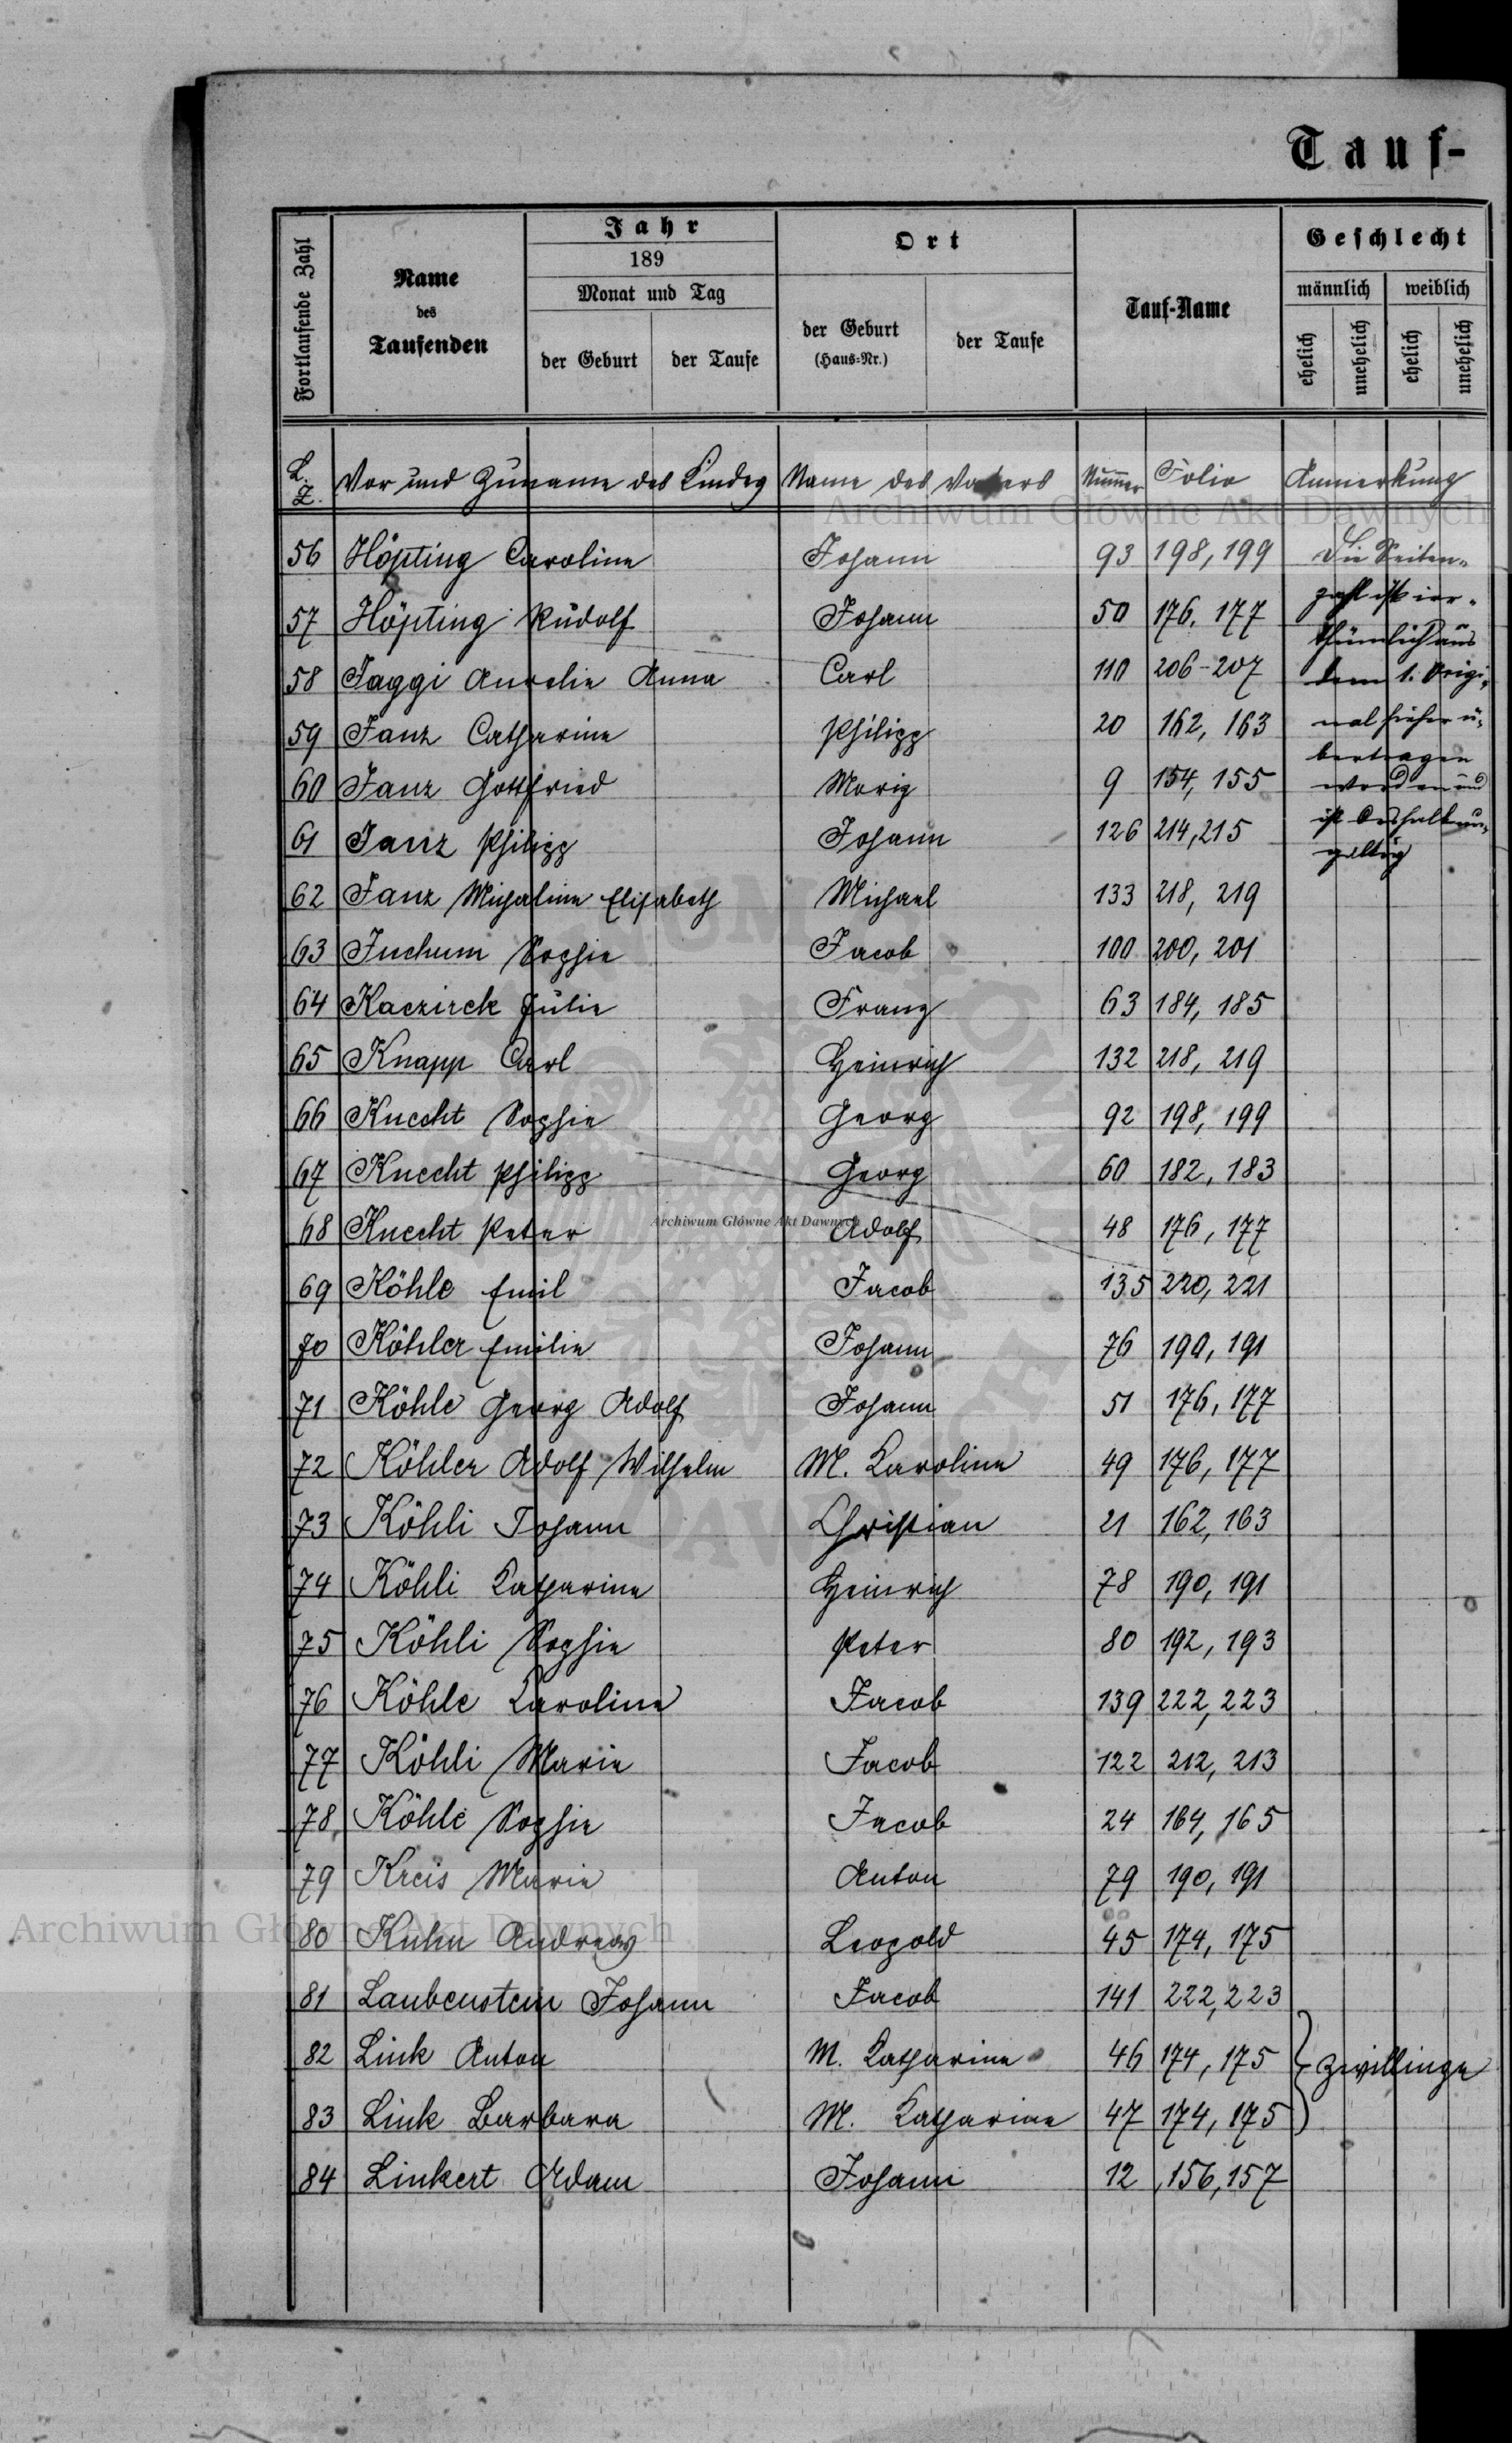 Tauf-
Fortlaufende Zahl
Name des Taufenden
Jahr
189
Monat und Tag
der Geburt
der Taufe
Ort
der Geburt (Haus-Nr.)
der Taufe
Tauf-Name
Geschlecht
männlich weiblich
ehelich unehelich ehelich unehelich
L. Z. Vor und Zuname des Kindes Name des Vaters Nummer Folio Anmerkung
Archiwum Główne Akt Dawnych
56 Höpting Caroline Johann 93 198, 199 Die Seiten-
zahl ist irr-
57 Höpting Rudolf Johann 50 176, 177
thümlich aus
58 Jaggi Aurelie Anna Carl 110 206-207 dem 1. Origi-
59 Janz Catharine Philipp 20 162, 163 nal hieher ü-
bertragen
60 Janz Gottfried Moriz 9 154, 155 worden und
61 Janz Philipp Johann 126 214, 215 ist deshalb un-
gültig
62 Janz Michaline Elisabeth Michael 133 218, 219
63 Juchum Sophie Jacob 100 200, 201
64 Kaczirek Julie Franz 63 184, 185
65 Knapp Carl Heinrich 132 218, 219
66 Knecht Sophie Georg 92 198, 199
67 Knecht Philipp Georg 60 182, 183
Archiwum Główne Akt Dawnych
68 Knecht Peter Adolf 48 176, 177
69 Köhle Emil Jacob 135 220, 221
70 Köhler Emilie Johann 76 190, 191
71 Köhle Georg Adolf Johann 51 176, 177
72 Köhler Adolf Wilhelm M. Karoline 49 176, 177
73 Köhli Johann Christian 21 162, 163
74 Köhli Katharine Heinrich 78 190, 191
75 Köhli Sophie Peter 80 192, 193
76 Köhle Karoline Jacob 139 222, 223
77 Köhli Marie Jacob 122 212, 213
78 Köhle Sophie Jacob 24 164, 165
79 Kreis Marie Anton 79 190, 191
Archiwum Główne Akt Dawnych
80 Kuhn Andreas Leopold 45 174, 175
81 Laubenstein Johann Jacob 141 222, 223
82 Link Anton M. Katharine 46 174, 175 Zwillinge
83 Link Barbara M. Katharine 47 174, 175
84 Linkert Adam Johann 12 156, 157